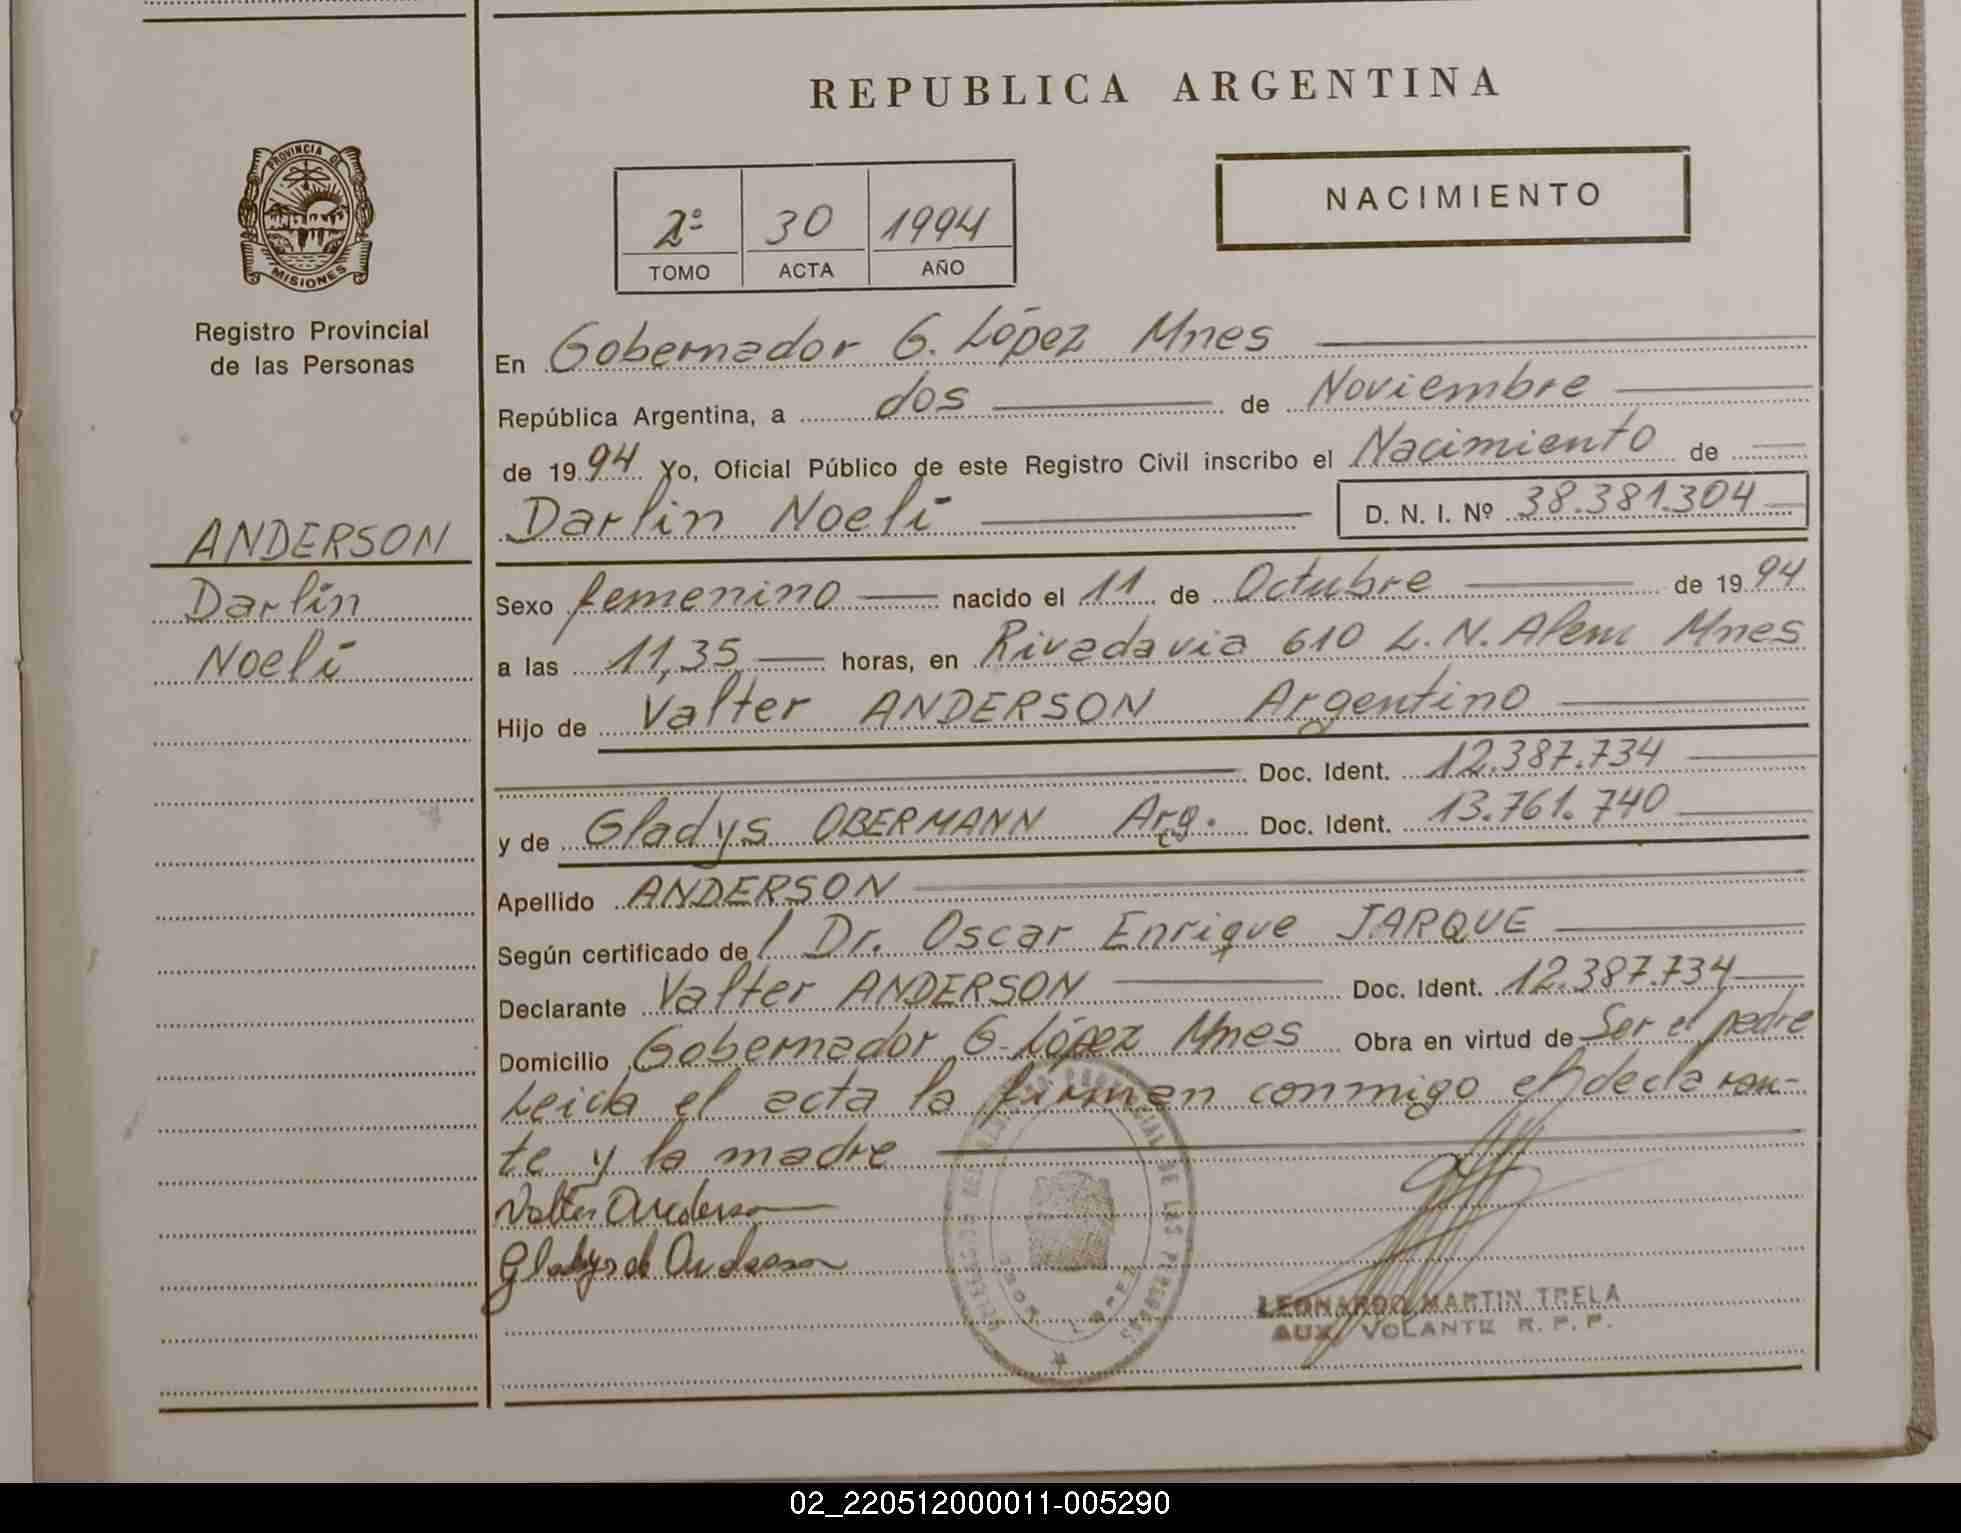 REPUBLICA ARGENTINA
PROVINCIA DE
MISIONES
Registro Provincial
de las Personas
NACIMIENTO
2º 30 1994
TOMO ACTA AÑO
En Gobernador G. López Mnes
República Argentina, a dos de Noviembre
de 1994 Yo, Oficial Público de este Registro Civil inscribo el Nacimiento de
Darlin Noelí D. N. I. Nº 38.381.304
ANDERSON
Darlin
Noelí
Sexo femenino nacido el 11 de Octubre de 1994
a las 11,35 horas, en Rivadavia 610 L. N. Alem Mnes
Hijo de Valter ANDERSON Argentino
Doc. Ident. 12.387.734
y de Gladys OBERMANN Arg. Doc. Ident. 13.761.740
Apellido ANDERSON
Según certificado de l Dr. Oscar Enrique JARQUE
Declarante Valter ANDERSON Doc. Ident. 12.387.734
Domicilio Gobernador G. López Mnes Obra en virtud de Ser el padre
Leida el acta la firman conmigo el declaran-
te y la madre
Valter Anderson
Gladys de Anderson
LEONARDO MARTIN TRELA
AUX. VOLANTE R. P. P.
02_220512000011-005290